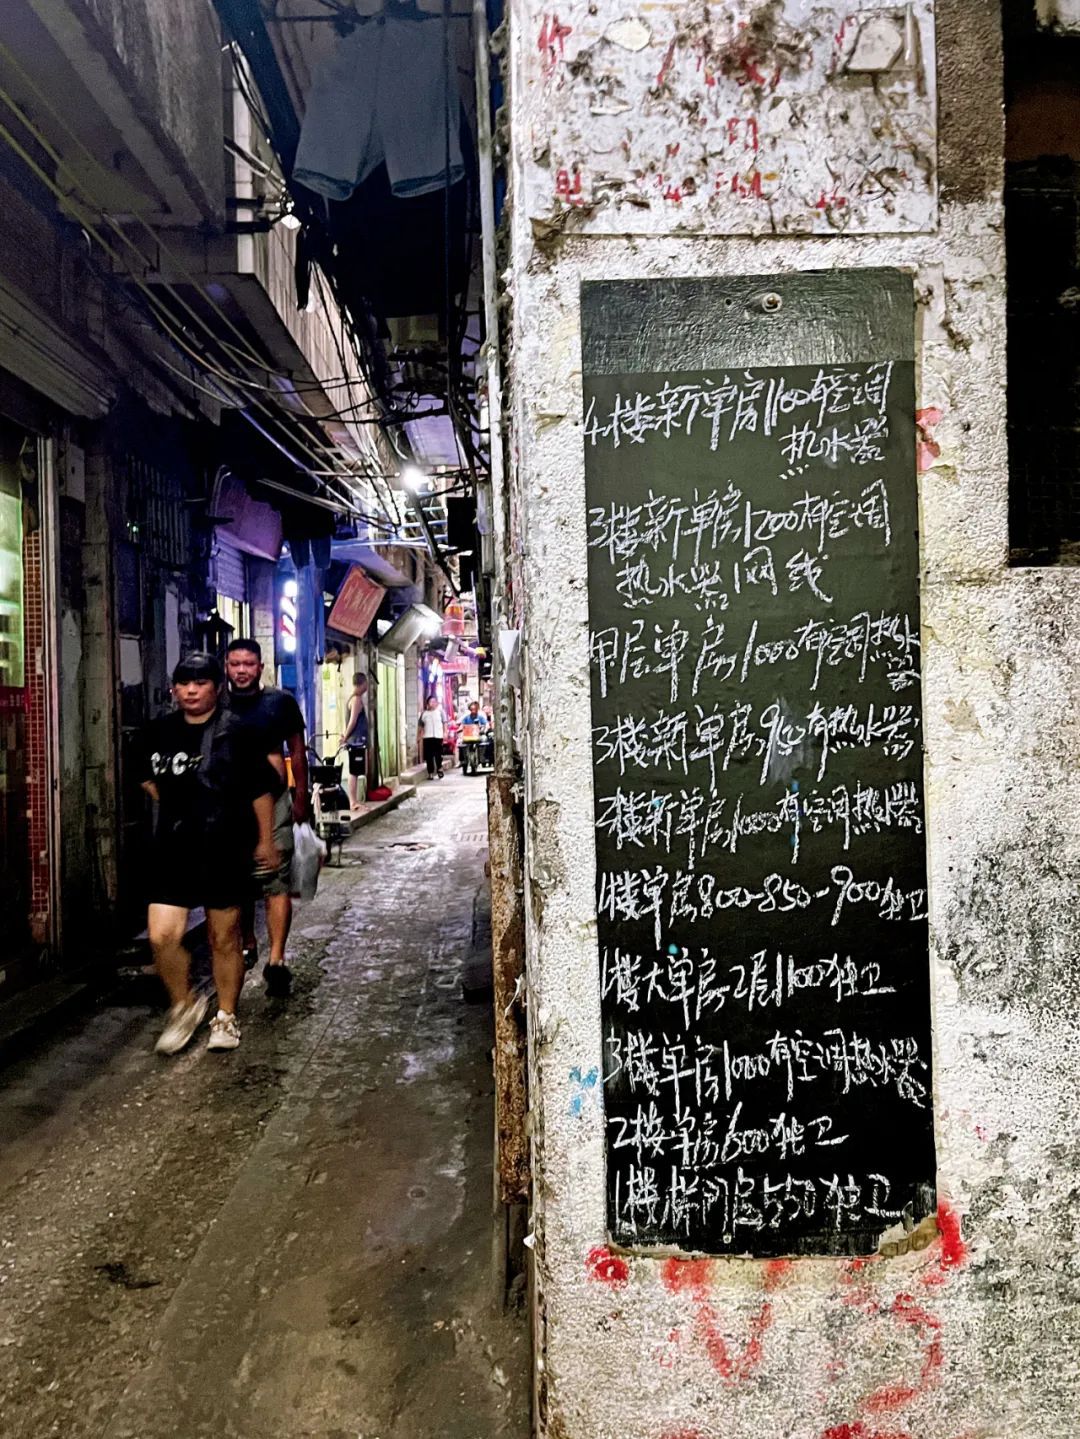 4楼新单房1100有空调
热水器
3楼新单房1200有空调
热水器网线
单房1000有空调热水器
3楼新单房900有热水器
2楼新单房1000有空调热水器
1楼单房800-850-900独卫
1楼大单房2层1100独卫
3楼单房1000有空调热水器
2楼单房600独卫
1楼 房550独卫